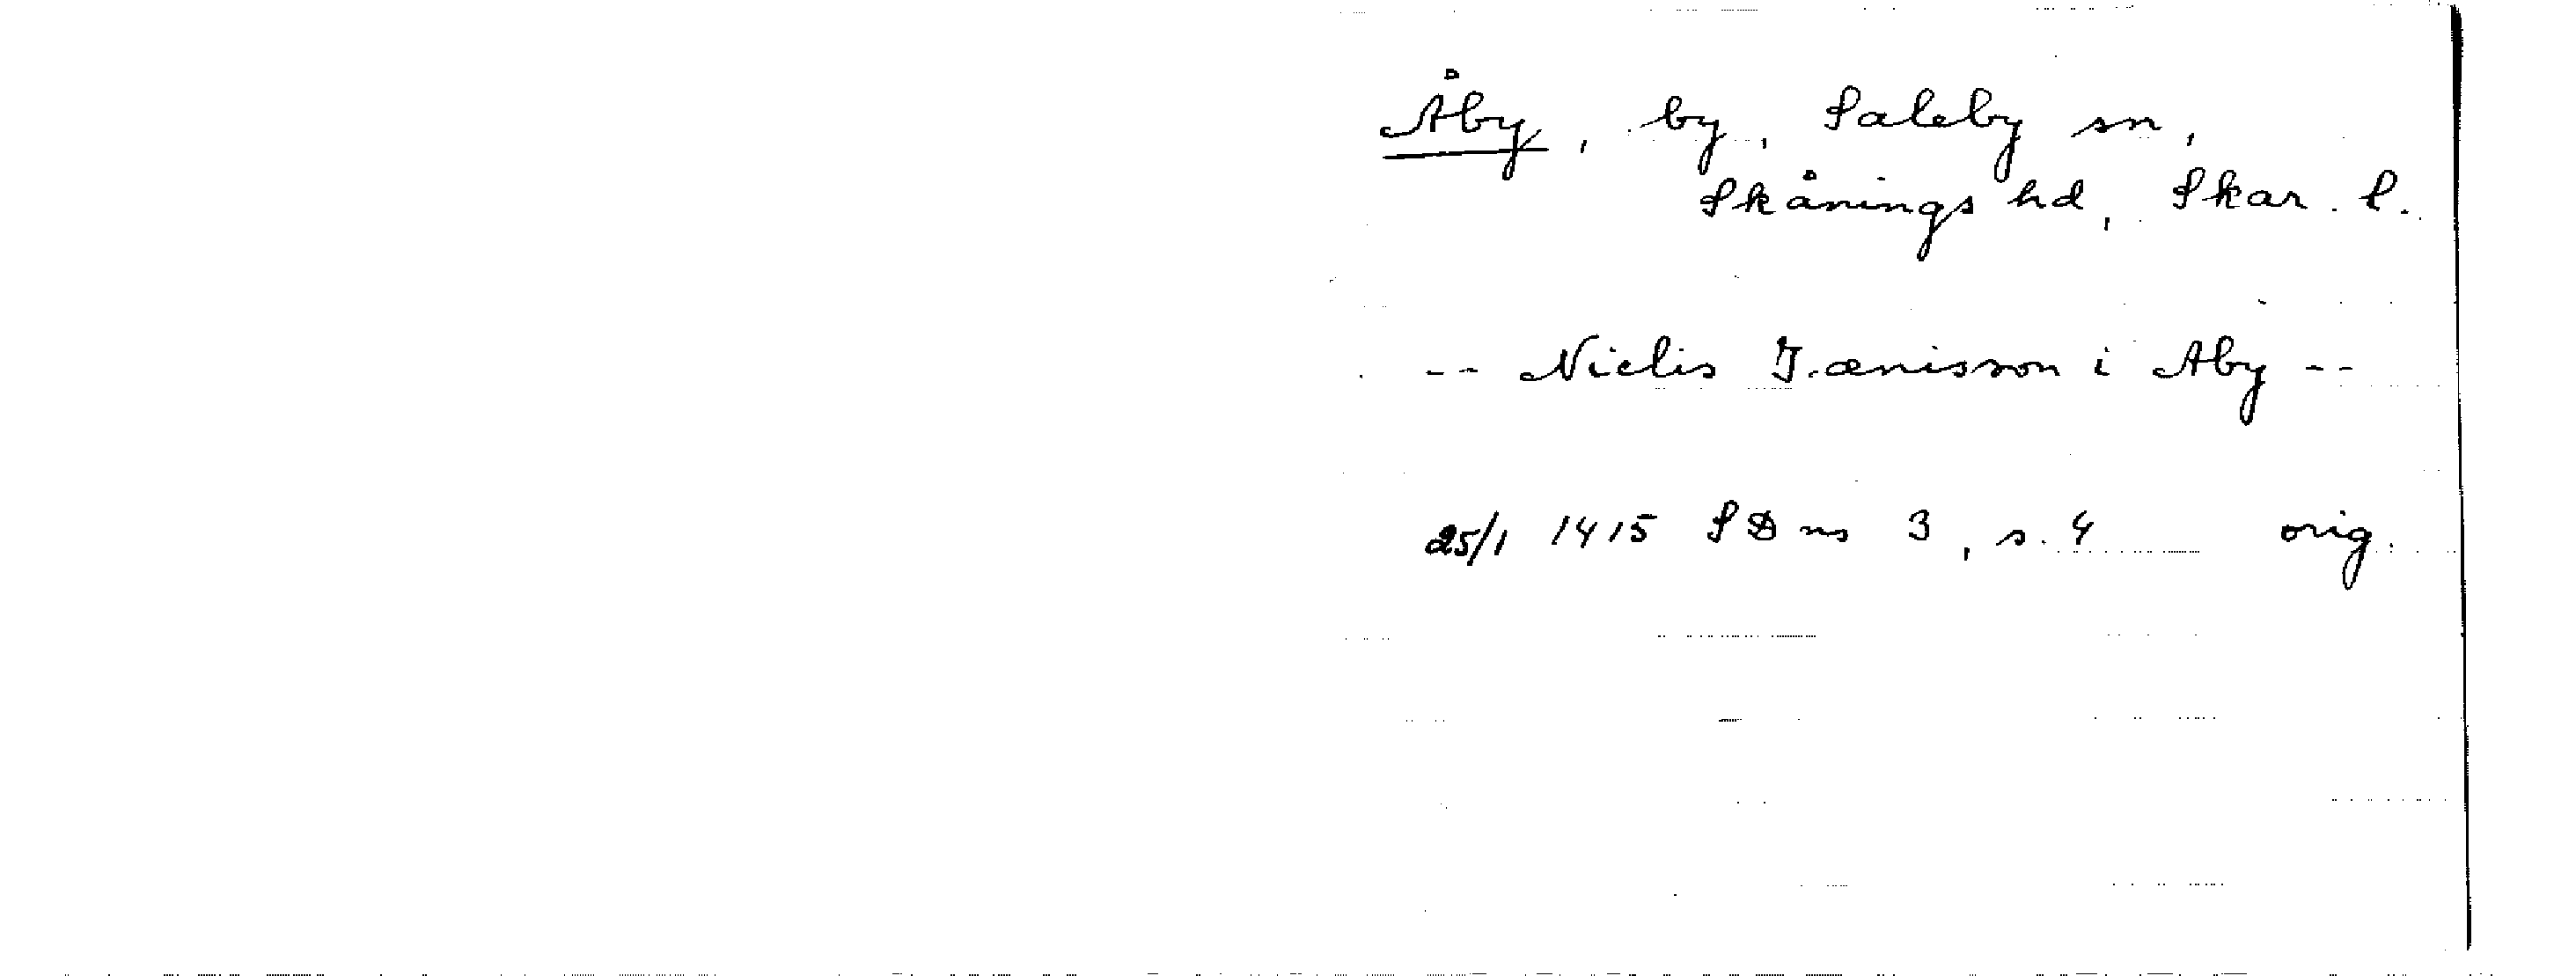 Åby, by, Saleby sn,
Skånings hd, Skar. l.
-- Niclis Jænisson i Aby --
25/1 1415 SD ns 3, s. 4 orig.